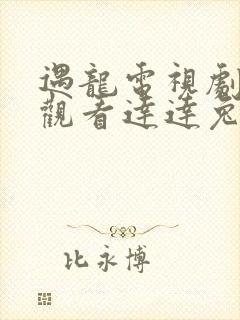 遇龍電視劇
觀看達達兔
比永博